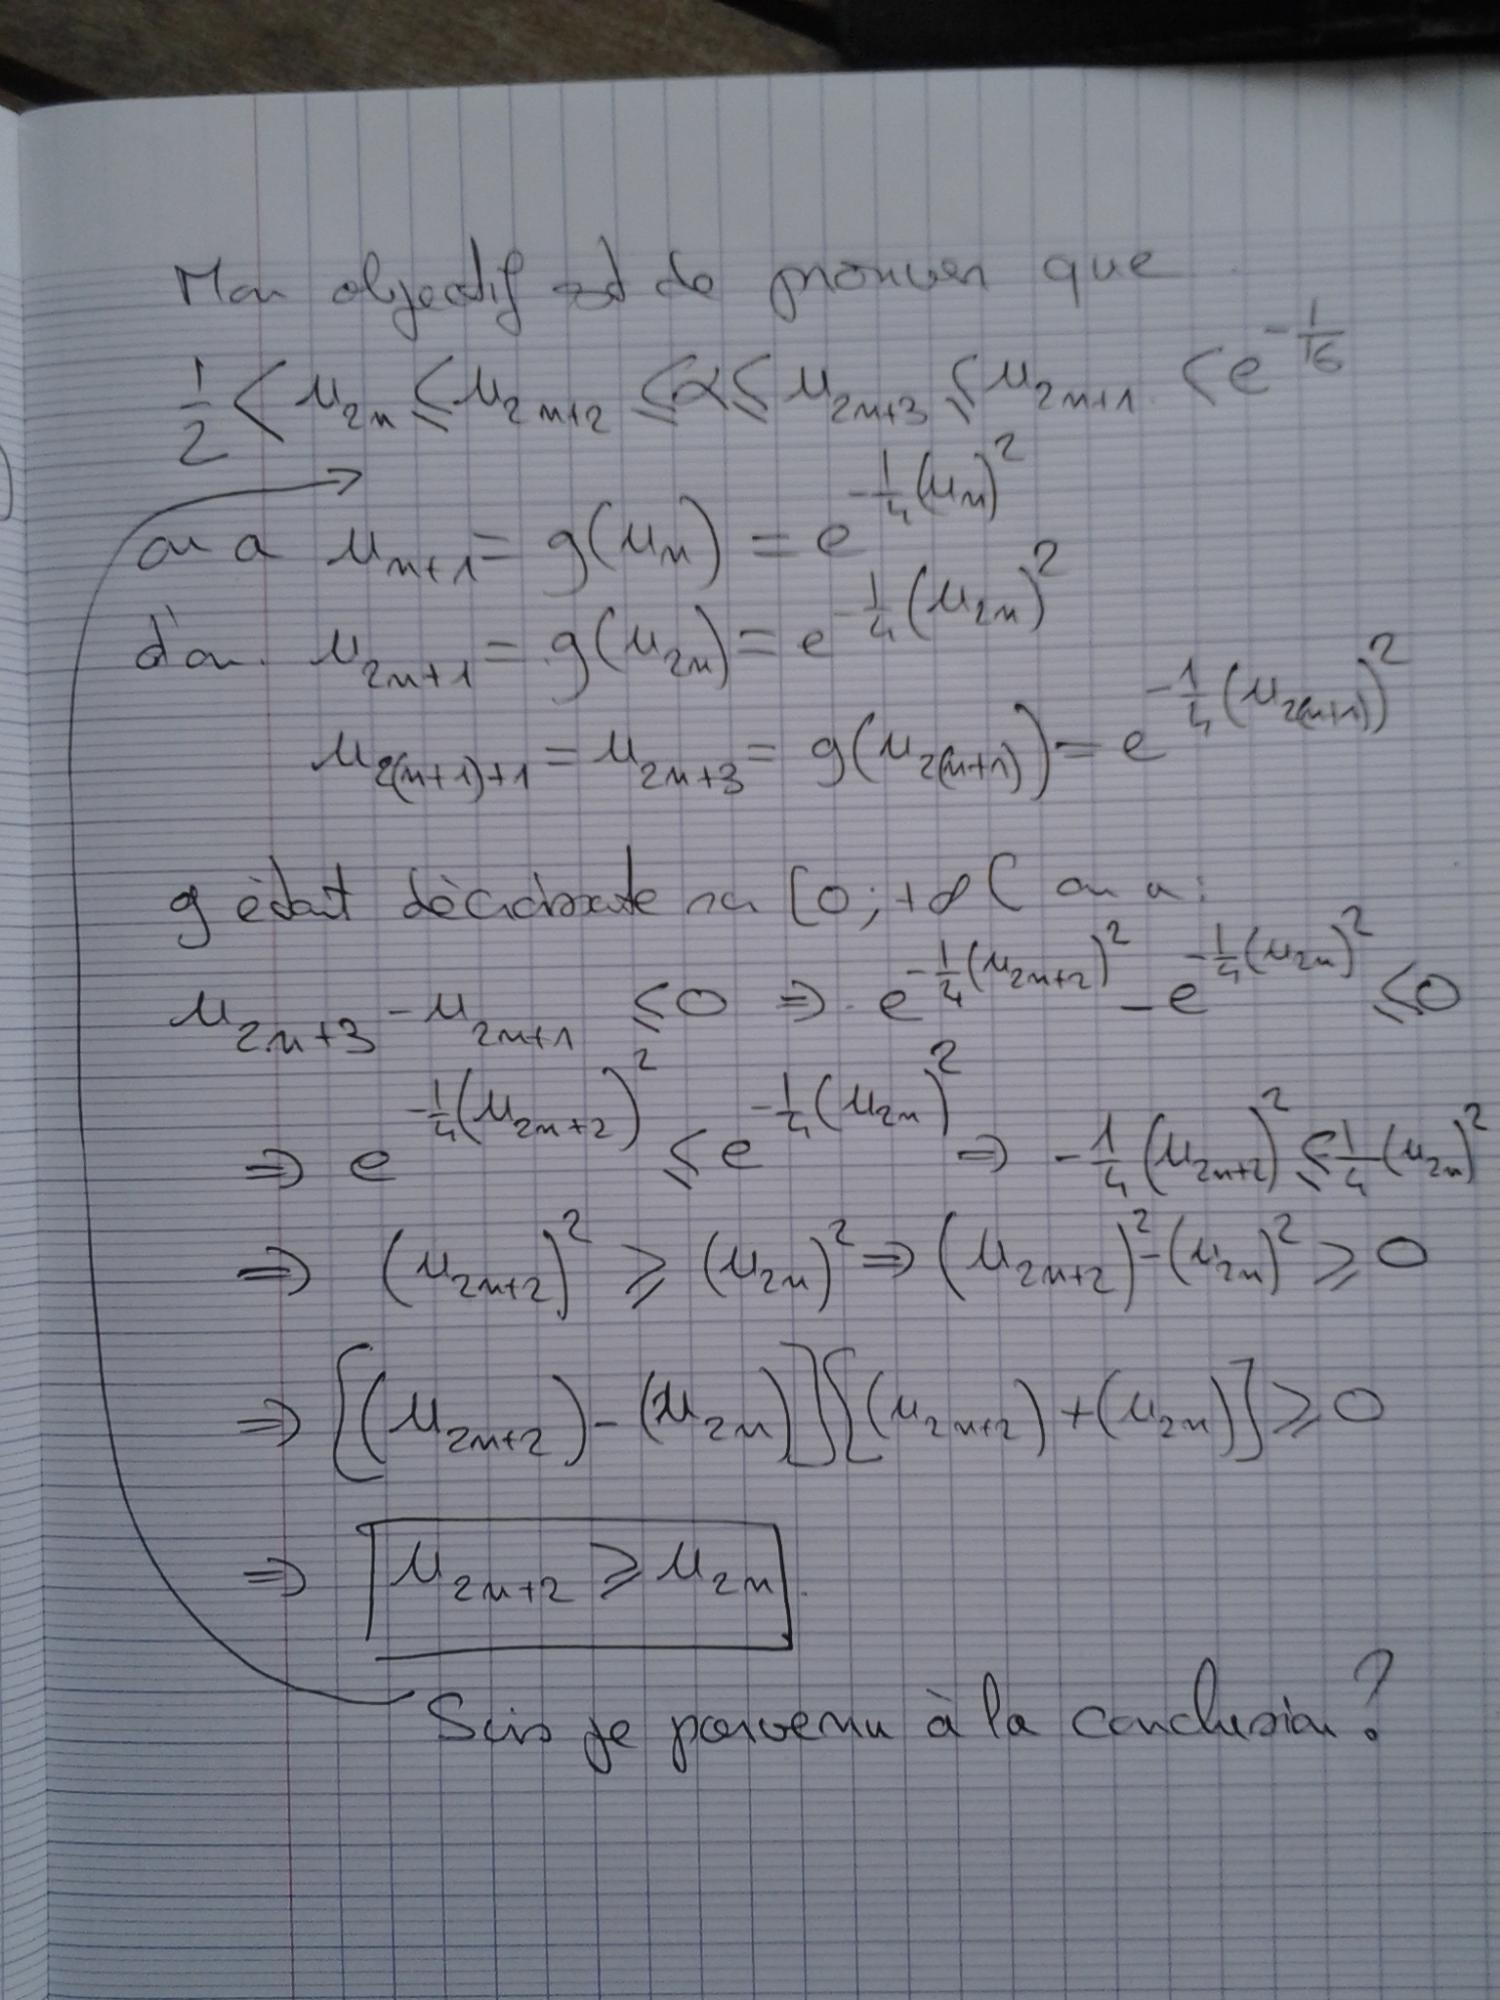 Mon objectif est de prouver que
1/2 < u_{2n} ≤ u_{2n+2} ≤ α ≤ u_{2n+3} ≤ u_{2n+1} ≤ e^{-1/16}
on a u_{n+1} = g(u_n) = e^{-1/4 (u_n)^2}
d'où. u_{2n+1} = g(u_{2n}) = e^{-1/4 (u_{2n})^2}
u_{2(n+1)+1} = u_{2n+3} = g(u_{2(n+1)}) = e^{-1/4 (u_{2(n+1)})^2}
g étant décroissante sur [0; +∞[ on a :
u_{2n+3} - u_{2n+1} ≤ 0 ⇒ e^{-1/4 (u_{2n+2})^2} - e^{-1/4 (u_{2n})^2} ≤ 0
⇒ e^{-1/4 (u_{2n+2})^2} ≤ e^{-1/4 (u_{2n})^2} ⇒ -1/4 (u_{2n+2})^2 ≤ 1/4 (u_{2n})^2
⇒ (u_{2n+2})^2 ≥ (u_{2n})^2 ⇒ (u_{2n+2})^2 - (u_{2n})^2 ≥ 0
⇒ [(u_{2n+2}) - (u_{2n})][(u_{2n+2}) + (u_{2n})] ≥ 0
⇒ u_{2n+2} ≥ u_{2n}.
Suis je parvenu à la conclusion ?